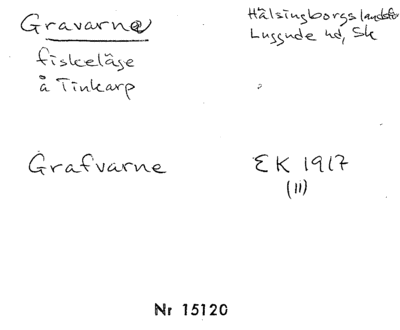 Gravarne
Hälsingborgs landsfs
Luggude hd, Sk
fiskeläge
å Tinkarp
Grafvarne
EK 1917
(11)
Nr 15120